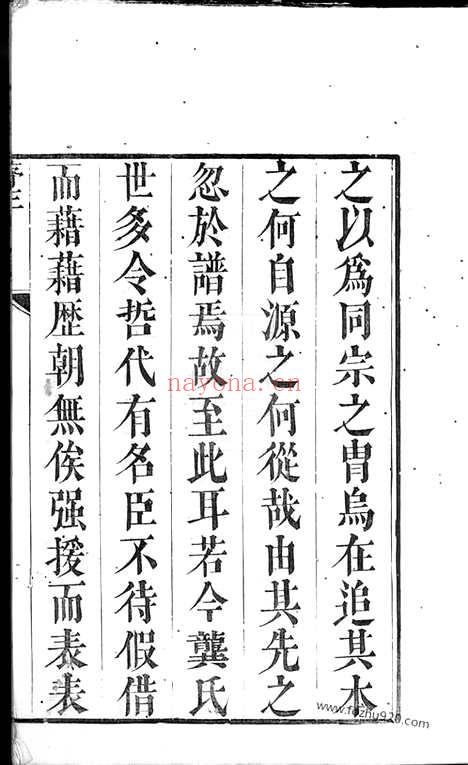 之以爲同宗之胄烏在追其木
之何自源之何從哉由其先之
忽於譜焉故至此耳若今龔氏
世多令哲代有名臣不待假借
而藉藉歴朝無俟强援而表表
nayona.cn
www.fozhu920.com